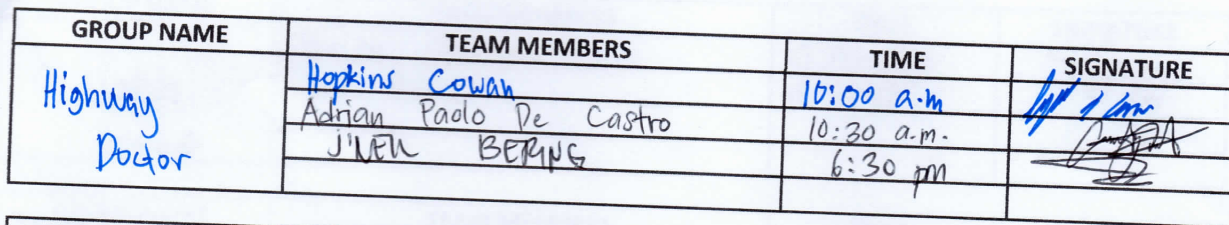 GROUP NAME TEAM MEMBERS TIME SIGNATURE
Highway Doctor
Hopkins Cowan 10:00 a.m
Adrian Paolo De Castro 10:30 a.m.
BERING 6:30 pm